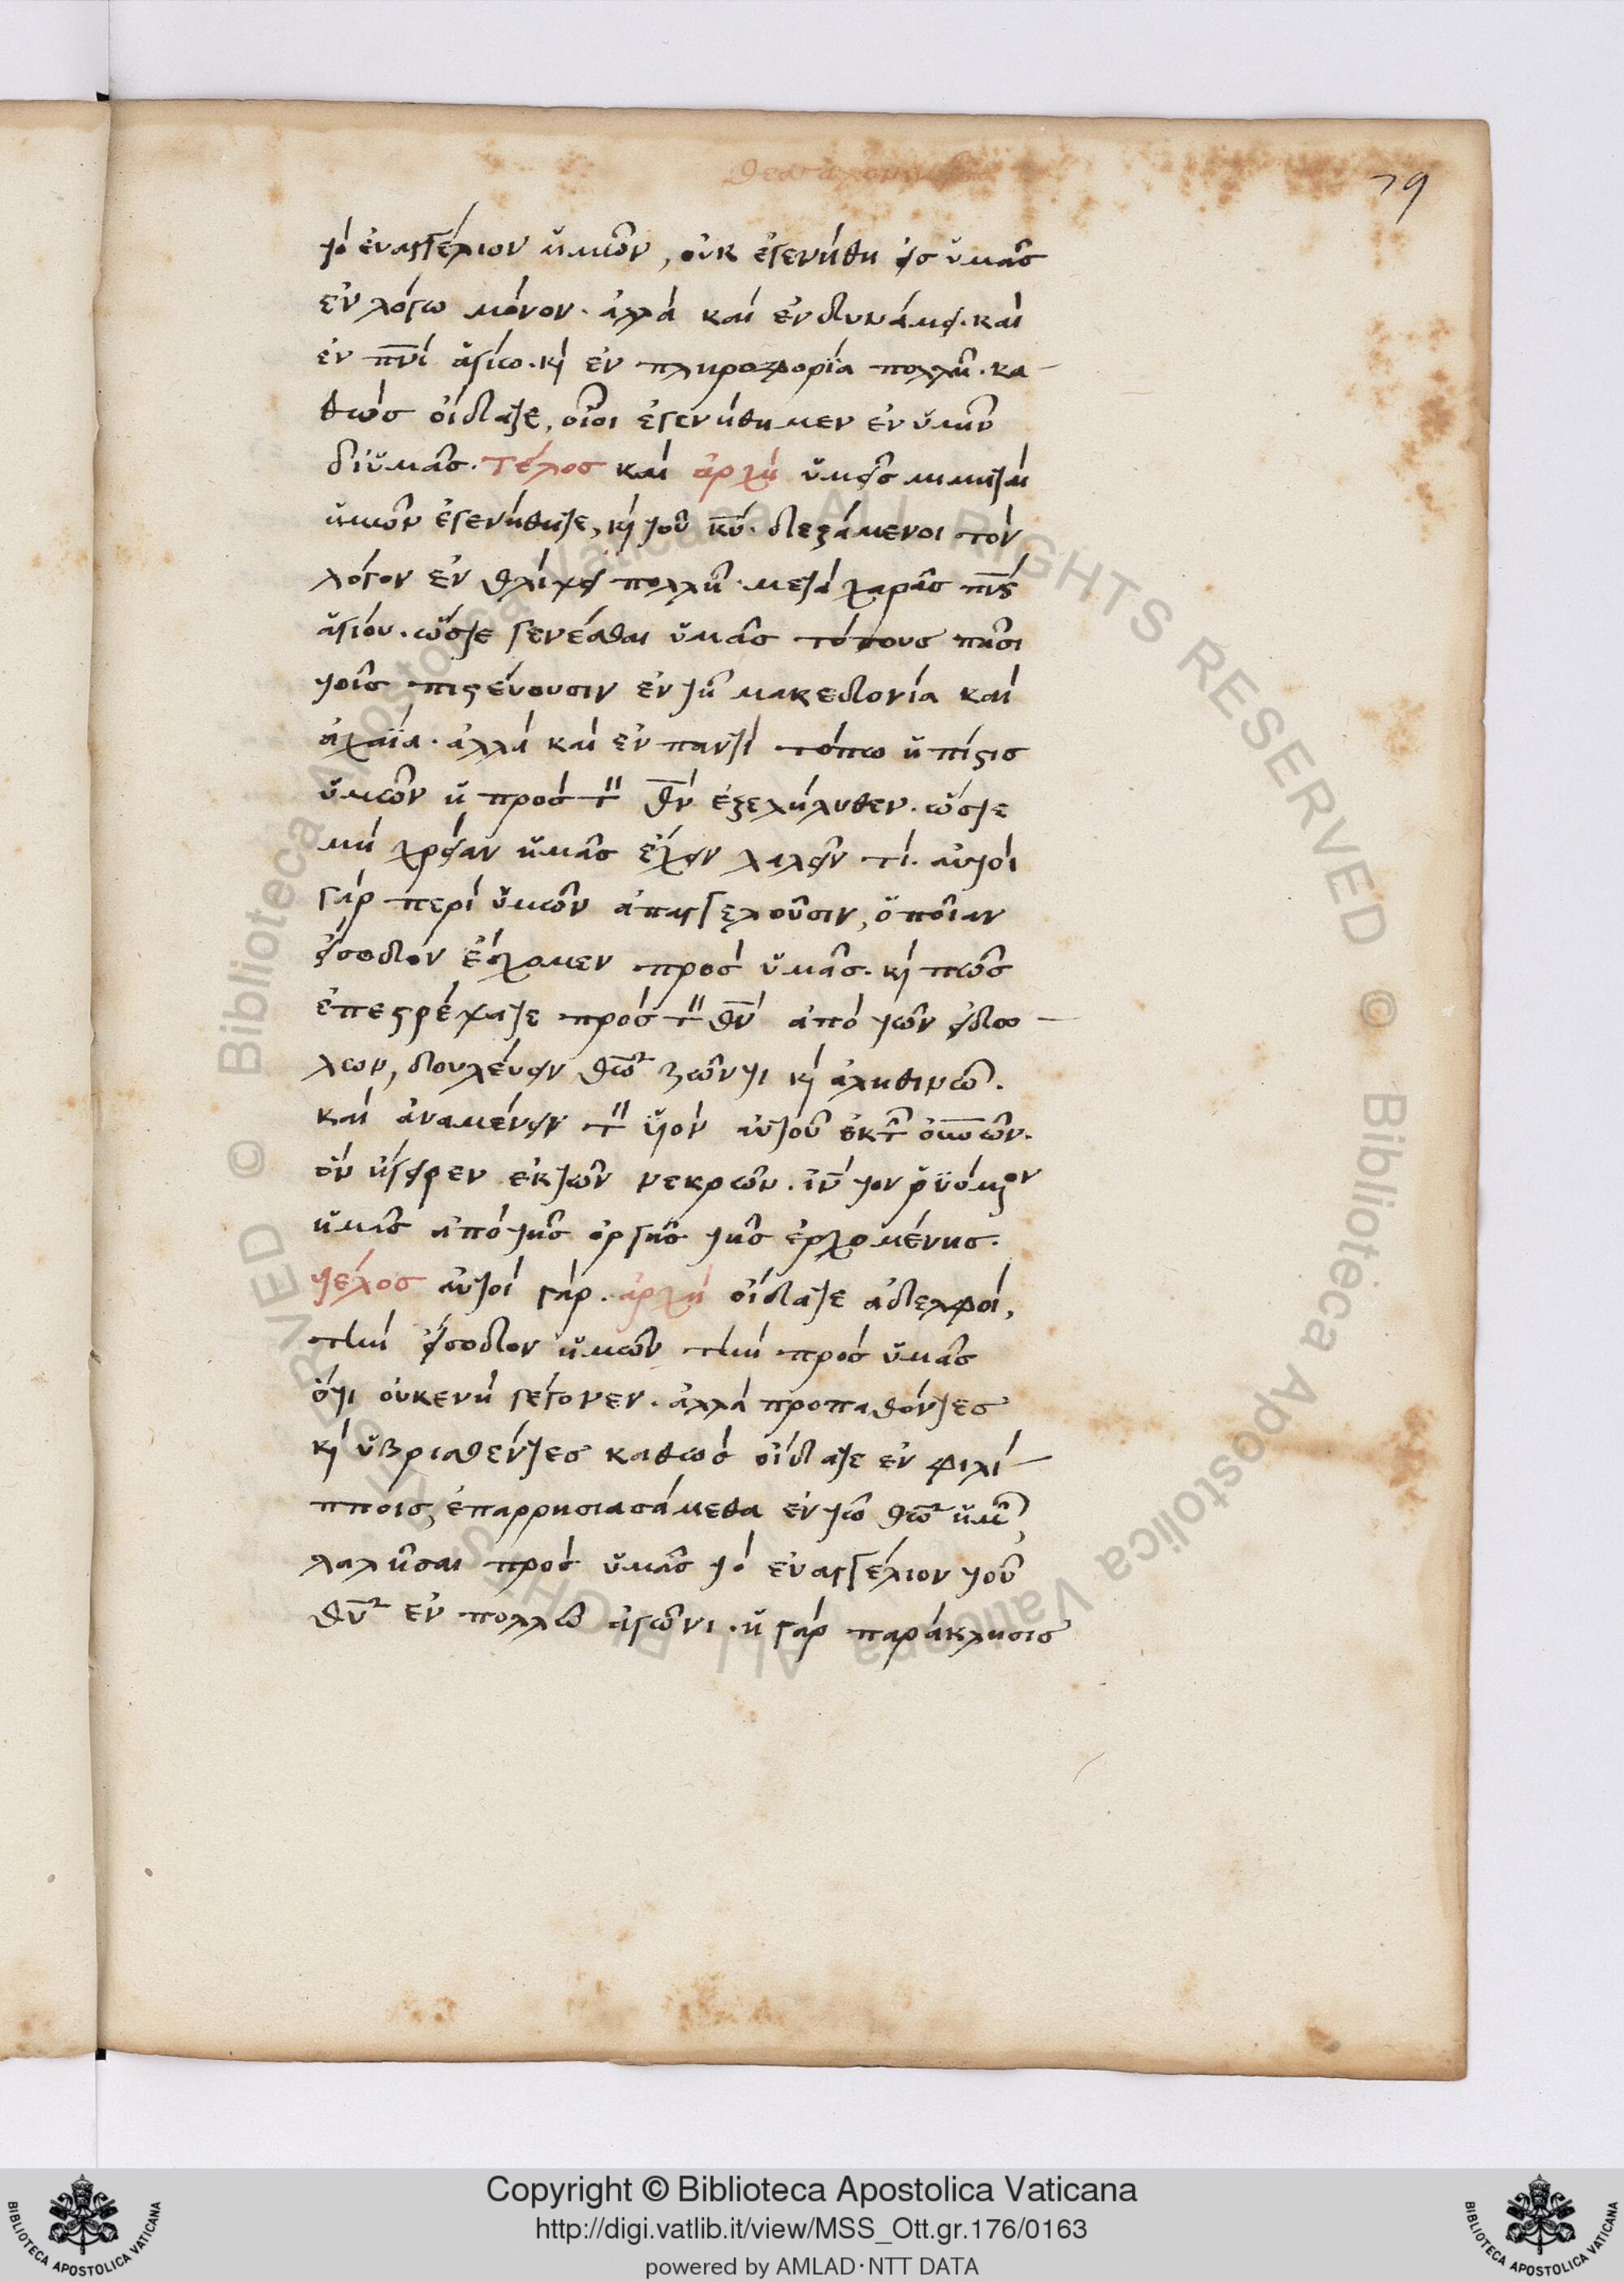 79
το εὐαγγέλιον ἡμῶν, οὐκ ἐγενήθη εἰς ὑμᾶς
ἐν λόγω μόνον· ἀλλὰ καὶ ἐν δυνάμει· καὶ
ἐν πνι ἁγίω· κὶ ἐν πληροφορία πολλῆ· κα-
θὼς οἴδατε, οἷοι ἐγενήθημεν ἐν ὑμῖν
δι' ὑμᾶς· τέλος καὶ ἀρχὴ ὑμεῖς μιμηταὶ
ἡμῶν ἐγενήθητε, κὶ τοῦ κυ· δεξάμενοι τὸν
λόγον ἐν θλίψει πολλῆ· μετὰ χαρᾶς πνς
ἁγίου· ὥστε γενέσθαι ὑμᾶς τύπους πᾶσι
τοῖς πιστεύουσιν ἐν τῆ μακεδονία καὶ
ἀχαΐα· ἀλλὰ καὶ ἐν παντὶ τόπω ἡ πίστις
ὑμῶν ἡ πρὸς τὸν θν ἐξελήλυθεν· ὥστε
μὴ χρείαν ἡμᾶς ἔχειν λαλεῖν τι· αὐτοὶ
γὰρ περὶ ὑμῶν ἀπαγγελοῦσιν, ὁποῖαν
εἴσοδον ἔσχομεν πρὸς ὑμᾶς· κὶ πῶς
ἐπεστρέψατε πρὸς τὸν θν ἀπὸ τῶν εἰδώ-
λων, δουλεύειν θω ζῶντι κὶ ἀληθινῶ·
καὶ ἀναμένειν τὸν υἱὸν αὐτοῦ ἐκ τῶν οὐνῶν·
ὃν ἤγειρεν ἐκ τῶν νεκρῶν· ιν τον ῥυόμενον
ἡμᾶς ἀπὸ τῆς ὀργῆς τῆς ἐρχομένης·
τέλος αὐτοὶ γὰρ· ἀρχὴ οἴδατε ἀδελφοὶ,
τὴν εἴσοδον ἡμῶν τὴν πρὸς ὑμᾶς
ὅτι οὐ κενὴ γέγονεν· ἀλλὰ προπαθόντες
κὶ ὑβρισθέντες καθὼς οἴδατε ἐν φιλί-
πποις, ἐπαρρησιασάμεθα ἐν τῶ θω ἡμῶν,
λαλῆσαι πρὸς ὑμᾶς τὸ εὐαγγέλιον τοῦ
θυ ἐν πολλῶ ἀγῶνι· ἡ γὰρ παράκλησις
© Biblioteca Apostolica Vaticana ALL RIGHTS RESERVED
Copyright © Biblioteca Apostolica Vaticana
http://digi.vatlib.it/view/MSS_Ott.gr.176/0163
powered by AMLAD·NTT DATA
BIBLIOTECA APOSTOLICA VATICANA
BIBLIOTECA APOSTOLICA VATICANA